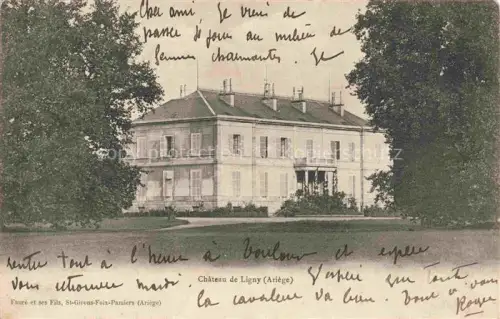 Cher ami, Je viens de
passer 2 jours au milieu de
femmes charmantes. Je
rentre tout à l'heure à Vouloux et espère
vous retrouver mardi.
Château de Ligny (Ariège)
Fauré et ses Fils, St-Girons-Foix-Pamiers (Ariège)
J'espère que tout
la cavaleur va bien. Tout à vous
Roger